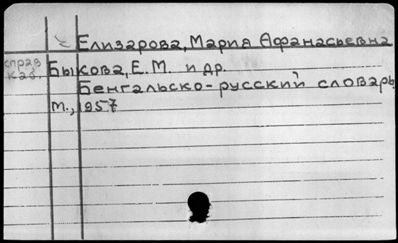 Елизарова, Мария Афанасьевна
справ
каб.
Быкова, Е.М. и др.
Бенгальско-русский словарь
М., 1957